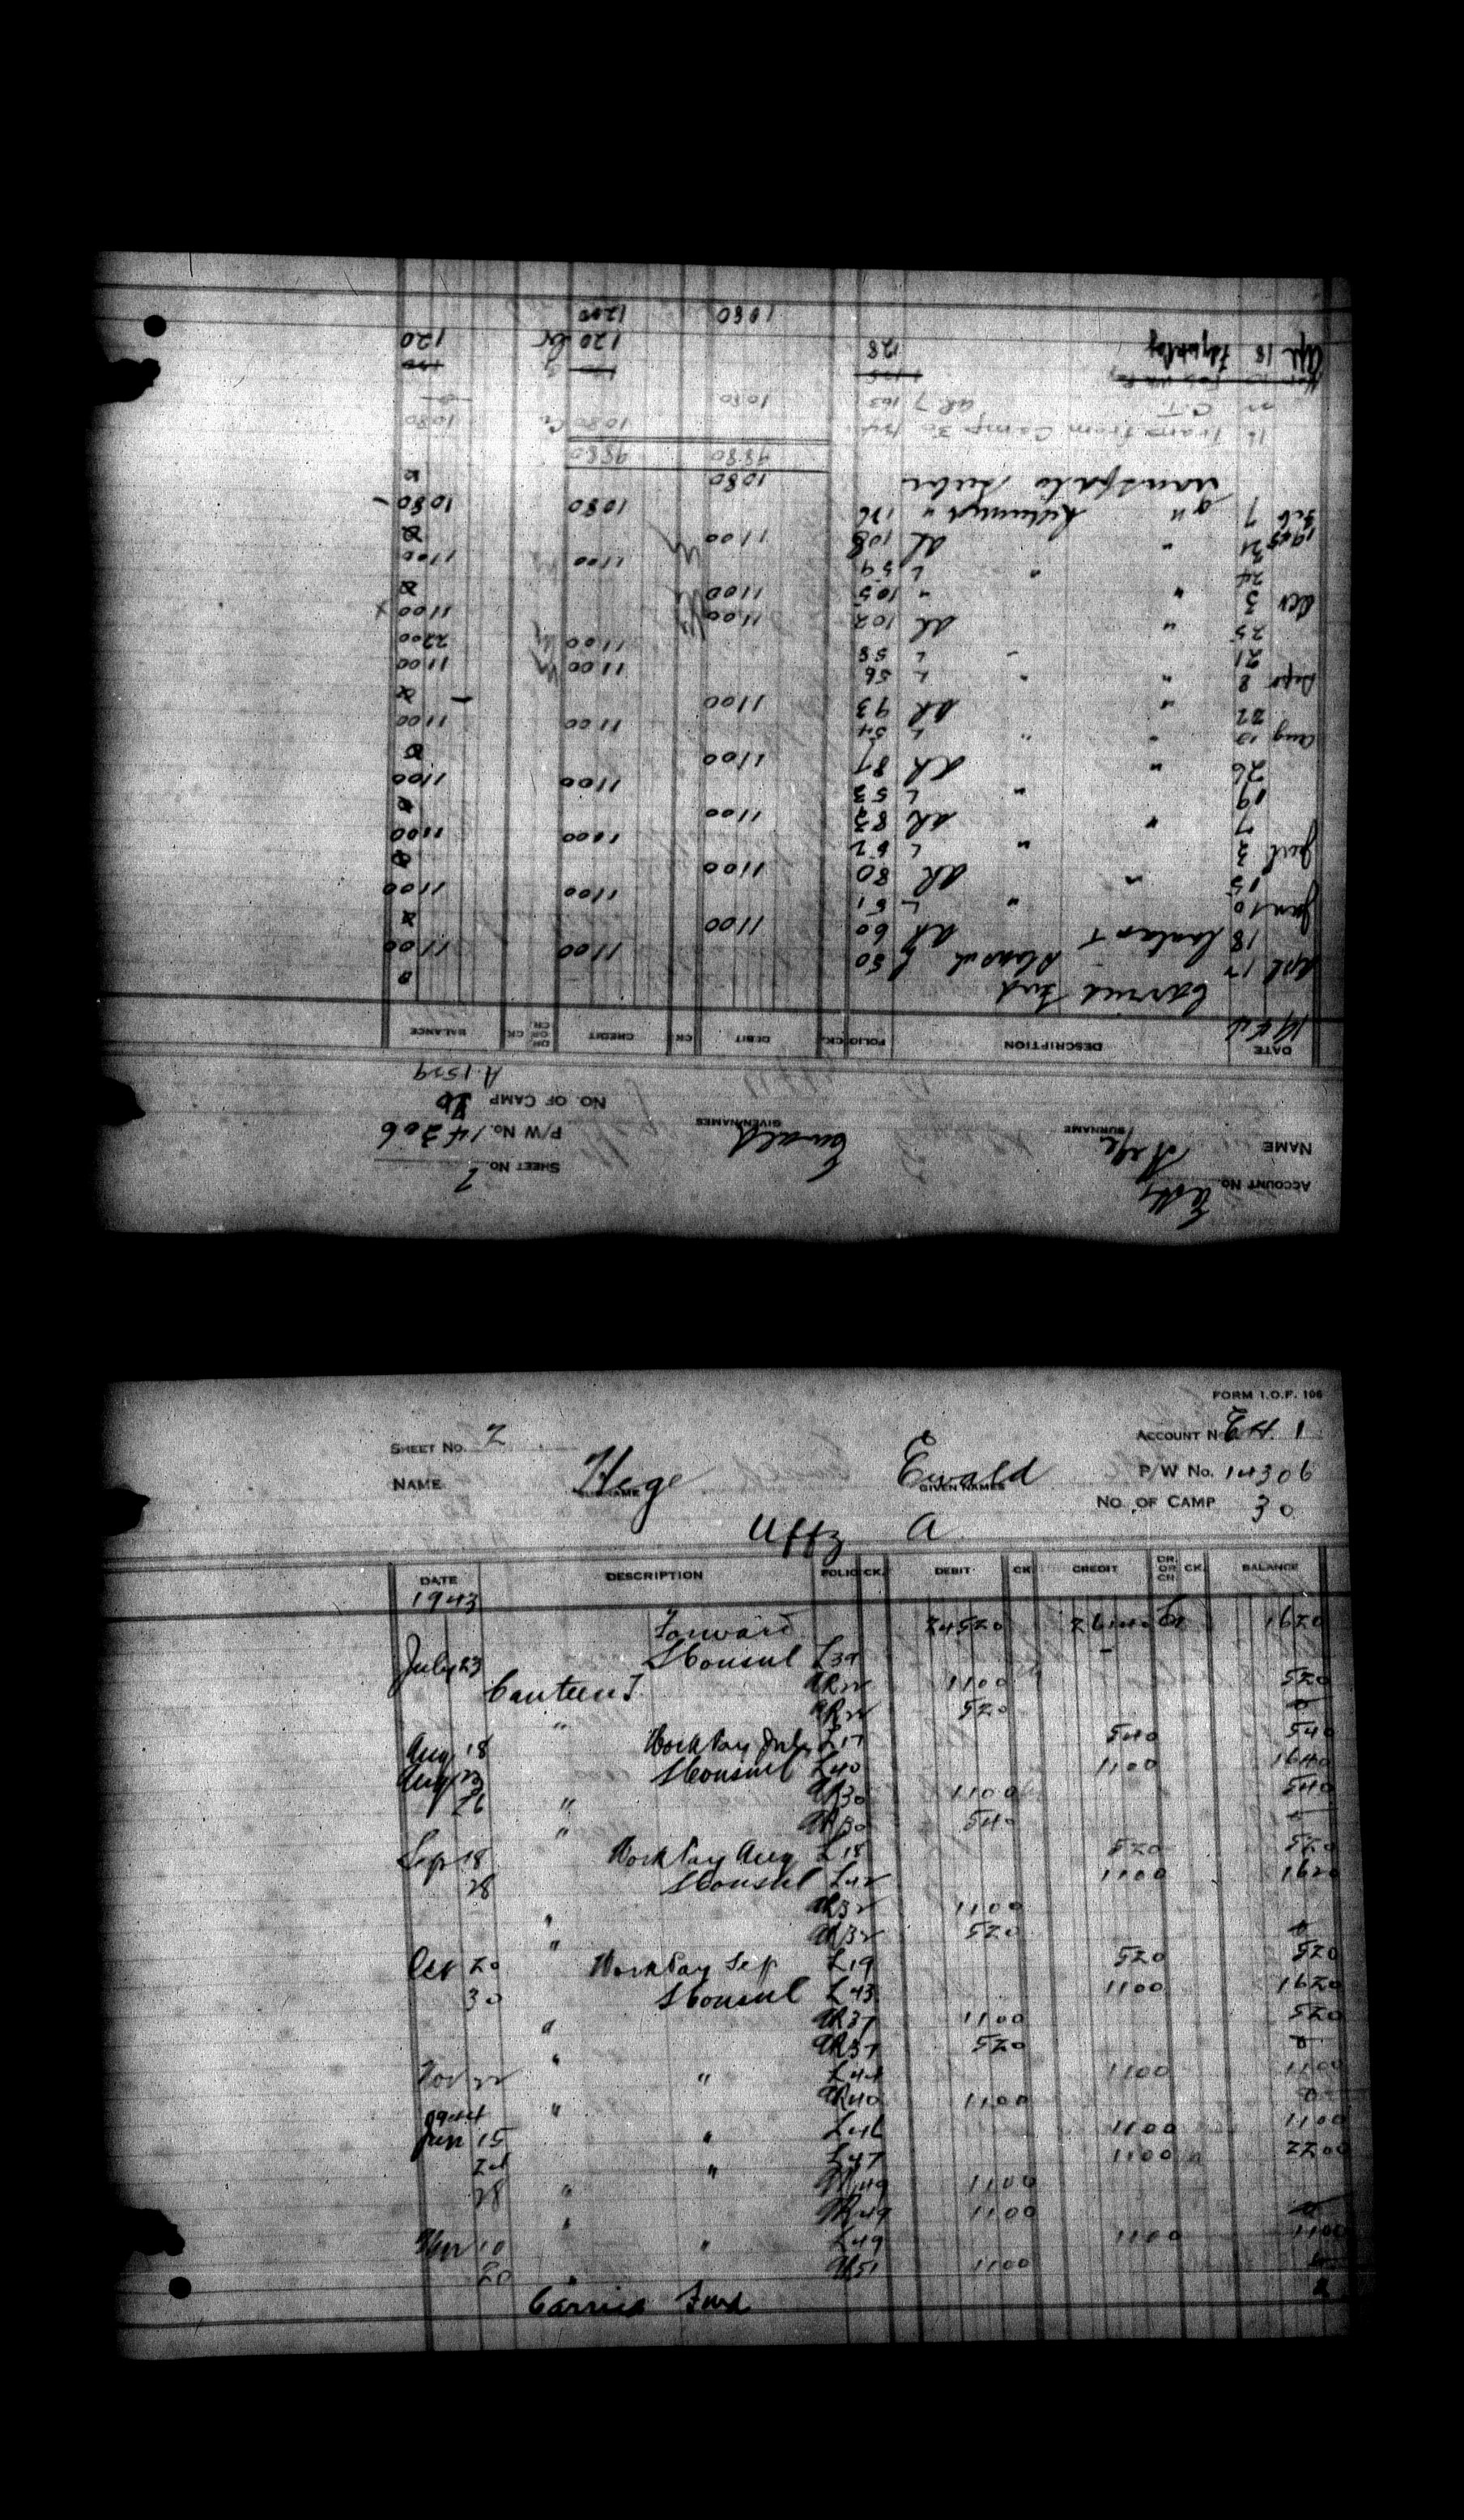 ACCOUNT No.
SHEET No. 2
NAME Hege Ewald P/W No. 14306
SURNAME GIVEN NAMES
NO. OF CAMP 30
A.1559
DATE DESCRIPTION FOLIO CK. DEBIT CK CREDIT DR. OR CR. CK. BALANCE
1944
Carried Fwd 0
Apl 17 S Consul L 50 1100 1100
18 Canteen T AR 60 1100 0
Jun 10 " L 51 1100 1100
15 " AR 80 1100 0
Jul 3 " L 52 1100 1100
7 " AR 83 1100 0
19 " L 53 1100 1100
26 " AR 87 1100 0
Aug 12 " " L 54 1100 1100
22 " AR 93 1100 0
Sept 8 " " L 56 1100 1100
21 " L 58 1100 2200
25 " AR 102 1100 1100
Oct 3 " " 105 1100 0
24 " L 59 1100 1100
31 " AR 108 1100 0
1945
Feb 7 " 176 1080 1080
1080 0
9880 9880
16 Trans from Camp 30 1080 Cr 1080
" C.T. AR 7 103 1080 0
Apl 18 128 120 Cr 120
1080 1200
FORM I.O.F. 106
SHEET No. 2 ACCOUNT No. EH. 1
NAME Hege Ewald P/W No. 14306
SURNAME GIVEN NAMES
NO. OF CAMP 30
Uffz A
DATE DESCRIPTION FOLIO CK. DEBIT CK CREDIT DR. OR CR. CK. BALANCE
1943
Forward 24520 26140 Cr 1620
July 23 S Consul L39 -
Canteen T AR22 1100 520
" AR22 520 0
Aug 18 Work Pay July L17 540 540
Aug 23 S Consul L40 1100 1640
26 " AR30 1100 540
" AR30 540 0
Sep 18 Work Pay Aug L18 520 520
28 S Consul L42 1100 1620
" AR32 1100
" AR32 520 0
Oct 20 Work Pay Sep L19 520 520
30 S Consul L43 1100 1620
" AR37 1100 520
" AR37 520 0
Nov 22 " L44 1100 1100
" AR40 1100 0
1944
Jan 15 " L46 1100 1100
24 " L47 1100 2200
28 " AR49 1100
" AR49 1100 0
Mar 10 " L49 1100 1100
20 " AR51 1100 0
Carried Fwd 0